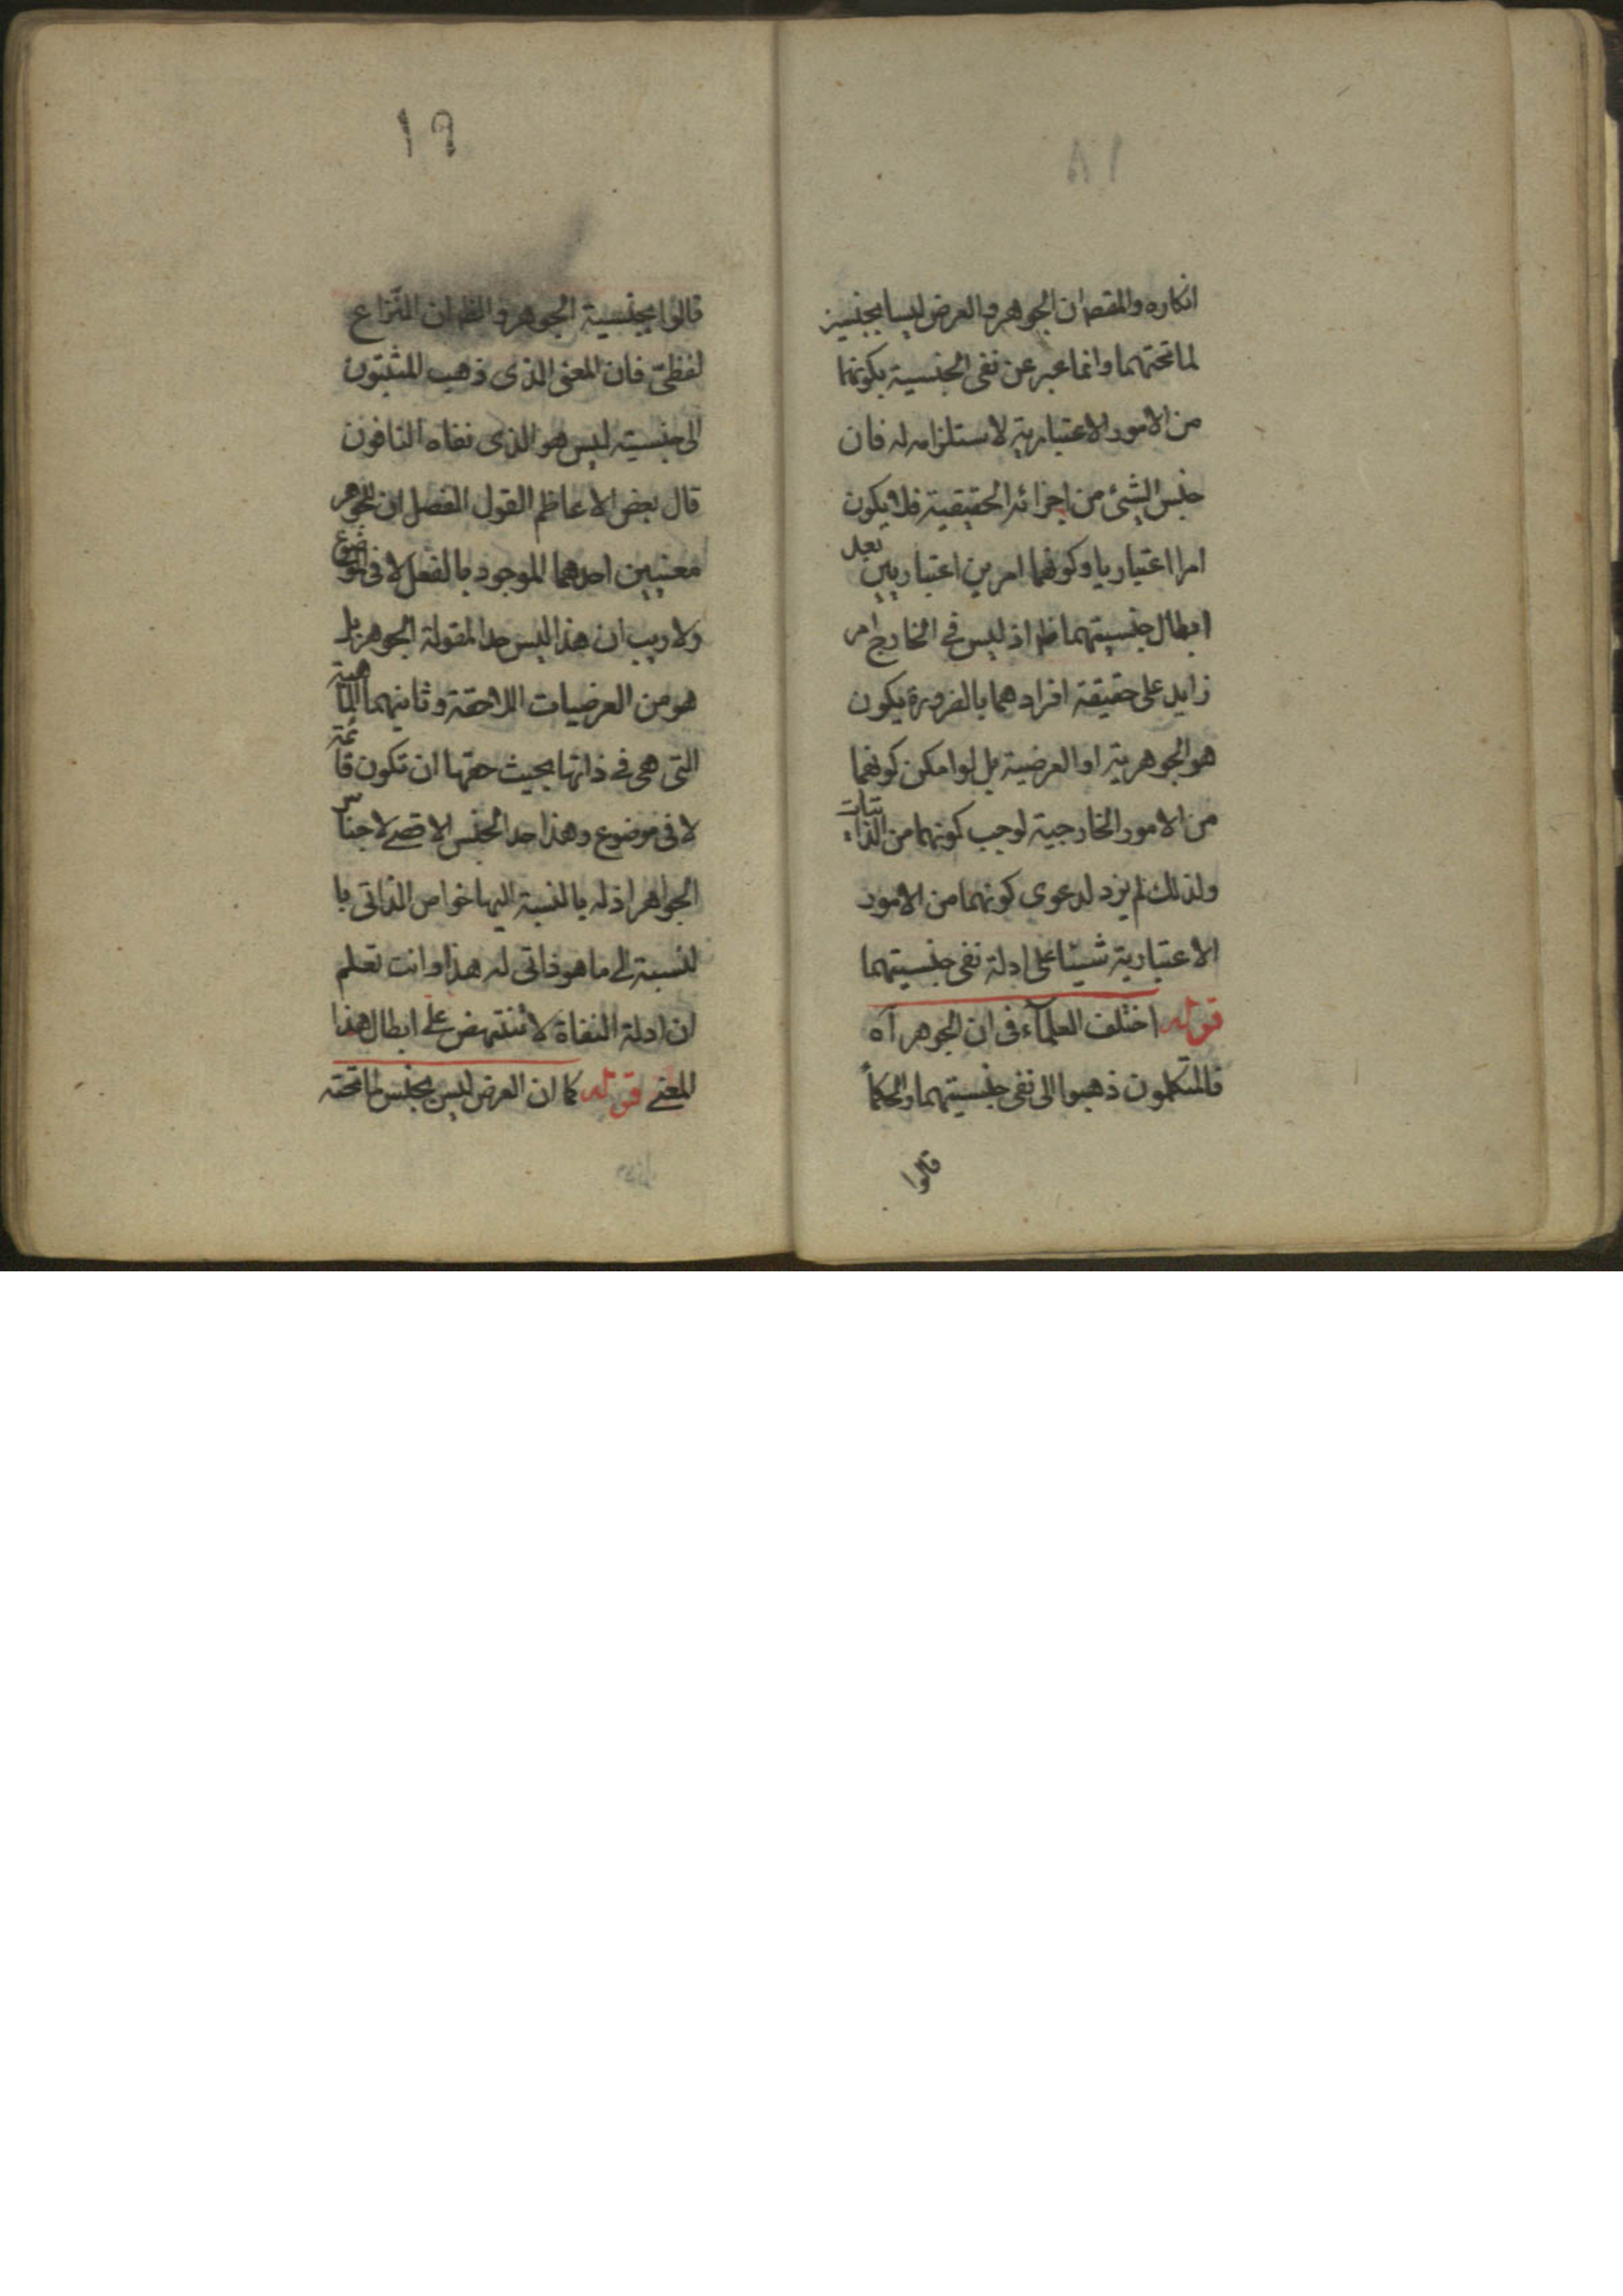 ١٨
انكاره والمقصم ان الجوهر والعرض ليسا بجنسين
لما تحتهما وانما عبر عن نفى الجنسية بكونهما
من الامور الاعتبارية لاستلزامه له فان
جنس الشئ من اجزائه الحقيقية فلا يكون
امرا اعتباريا وكونهما امرين اعتباريين بعد
ابطال جنسيتهما ظم اذ ليس فى الخارج امر
زايد على حقيقة افرادهما بالضرورة يكون
هو الجوهرية او العرضية بل لو امكن كونهما
من الامور الخارجية لوجب كونهما من الذاتيات
ولذلك لم يزد لدعوى كونهما من الامور
الاعتبارية شيئا على ادلة نفى جنسيتهما
قوله اختلف العلمآء فى ان الجوهر آه
فالمتكلمون ذهبوا الى نفى جنسيتهما والحكمأ
قالوا
١٩
قالوا بجنسية الجوهر والظم ان النزاع
لفظى فان المعنى الذى ذهب المثبتون
الى جنسيته ليس هو الذى نفاه النافون
قال بعض الاعاظم القول المفصل ان للجوهر
معنيين احدهما الموجود بالفعل لا فى الموضوع
ولا ريب ان هذا ليس حدا لمقولة الجوهر بل
هو من العرضيات اللاحقة وثانيهما الماهية
التى هى فى ذاتها بحيث حقها ان تكون قائمة
لا فى موضوع وهذا حد الجنس الاقصى لاجناس
الجواهر اذ له بالنسبة اليها خواص الذاتى با
لنسبة الى ما هو ذاتى له هذا وانت تعلم
ان ادلة النفاة لا تنتهض على ابطال هذا
المعنى قوله كما ان العرض ليس بجنس لما تحته